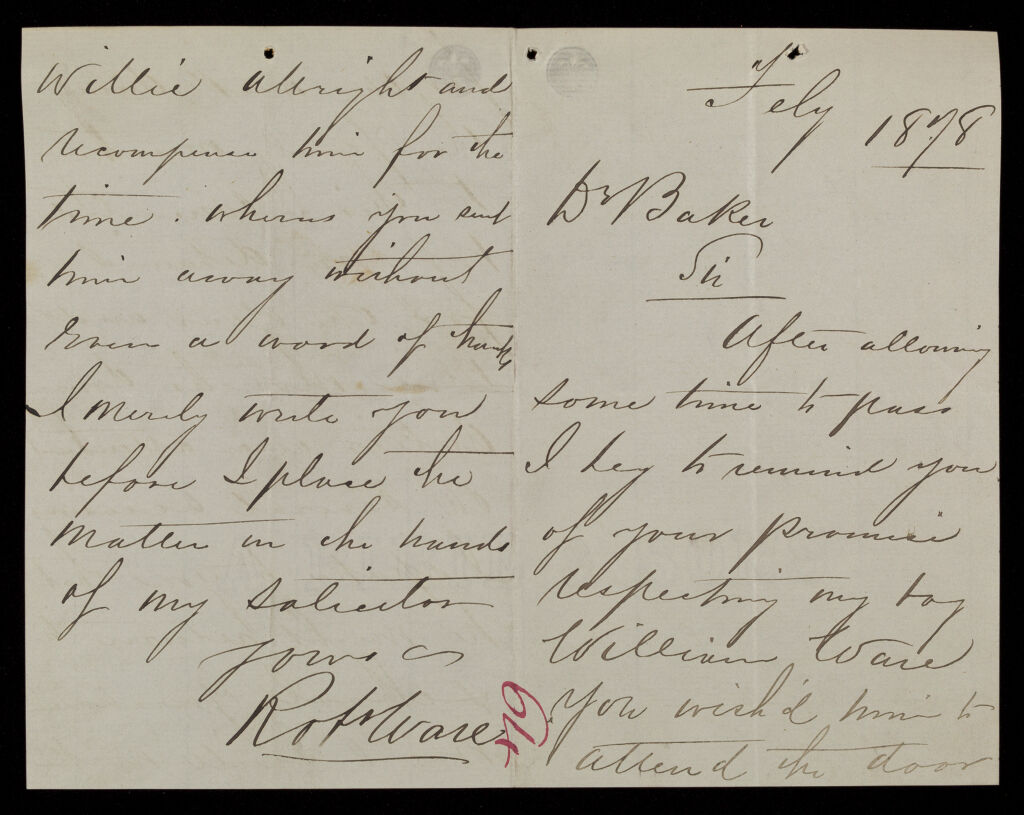 Feby
1878
Dr Baker
Sir
After allowing
some time to pass
I beg to remind you
of your promise
respecting my boy
William Ware
You wish'd him to
attend the door
Willie allright and
recompense him for the
time. wheras you sent
him away without
even a word of thanks
I merely write you
before I place the
matter in the hands
of my solicitor
yours &c
Robt Ware